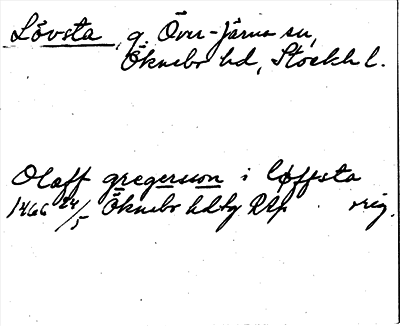 Lövsta, g. Över-Järna sn,
Öknebo hd, Stockh l.
Olaff gregersson i løffsta
1466 24/5 Öknebo hdtg RAp orig.